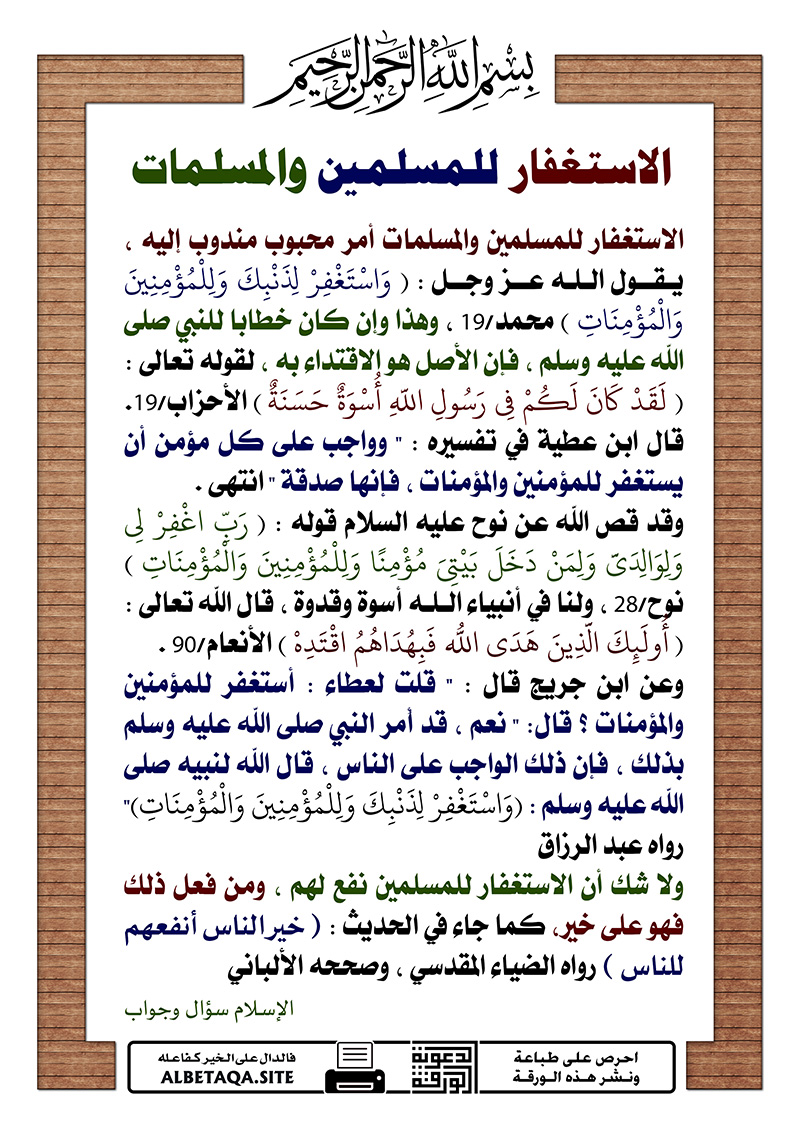 بِسْمِ اللَّهِ الرَّحْمَنِ الرَّحِيمِ
الاستغفار للمسلمين والمسلمات
الاستغفار للمسلمين والمسلمات أمر محبوب مندوب إليه ،
يقول الله عز وجل : ( وَاسْتَغْفِرْ لِذَنْبِكَ وَلِلْمُؤْمِنِينَ
وَالْمُؤْمِنَاتِ ) محمد/19 ، وهذا وإن كان خطابا للنبي صلى
الله عليه وسلم ، فإن الأصل هو الاقتداء به ، لقوله تعالى :
( لَقَدْ كَانَ لَكُمْ فِي رَسُولِ اللَّهِ أُسْوَةٌ حَسَنَةٌ ) الأحزاب/19.
قال ابن عطية في تفسيره : " وواجب على كل مؤمن أن
يستغفر للمؤمنين والمؤمنات ، فإنها صدقة " انتهى .
وقد قص الله عن نوح عليه السلام قوله : ( رَبِّ اغْفِرْ لِي
وَلِوَالِدَيَّ وَلِمَنْ دَخَلَ بَيْتِيَ مُؤْمِنًا وَلِلْمُؤْمِنِينَ وَالْمُؤْمِنَاتِ )
نوح/28 ، ولنا في أنبياء الله أسوة وقدوة ، قال الله تعالى :
( أُولَئِكَ الَّذِينَ هَدَى اللَّهُ فَبِهُدَاهُمُ اقْتَدِهْ ) الأنعام/90 .
وعن ابن جريج قال : " قلت لعطاء : أستغفر للمؤمنين
والمؤمنات ؟ قال: " نعم ، قد أمر النبي صلى الله عليه وسلم
بذلك ، فإن ذلك الواجب على الناس ، قال الله لنبيه صلى
الله عليه وسلم : (وَاسْتَغْفِرْ لِذَنْبِكَ وَلِلْمُؤْمِنِينَ وَالْمُؤْمِنَاتِ)"
رواه عبد الرزاق
ولا شك أن الاستغفار للمسلمين نفع لهم ، ومن فعل ذلك
فهو على خير، كما جاء في الحديث : ( خير الناس أنفعهم
للناس ) رواه الضياء المقدسي ، وصححه الألباني
الإسلام سؤال وجواب
احرص على طباعة
ونشر هذه الورقة
الورقة الدعوية
فالدال على الخير كفاعله
ALBETAQA.SITE